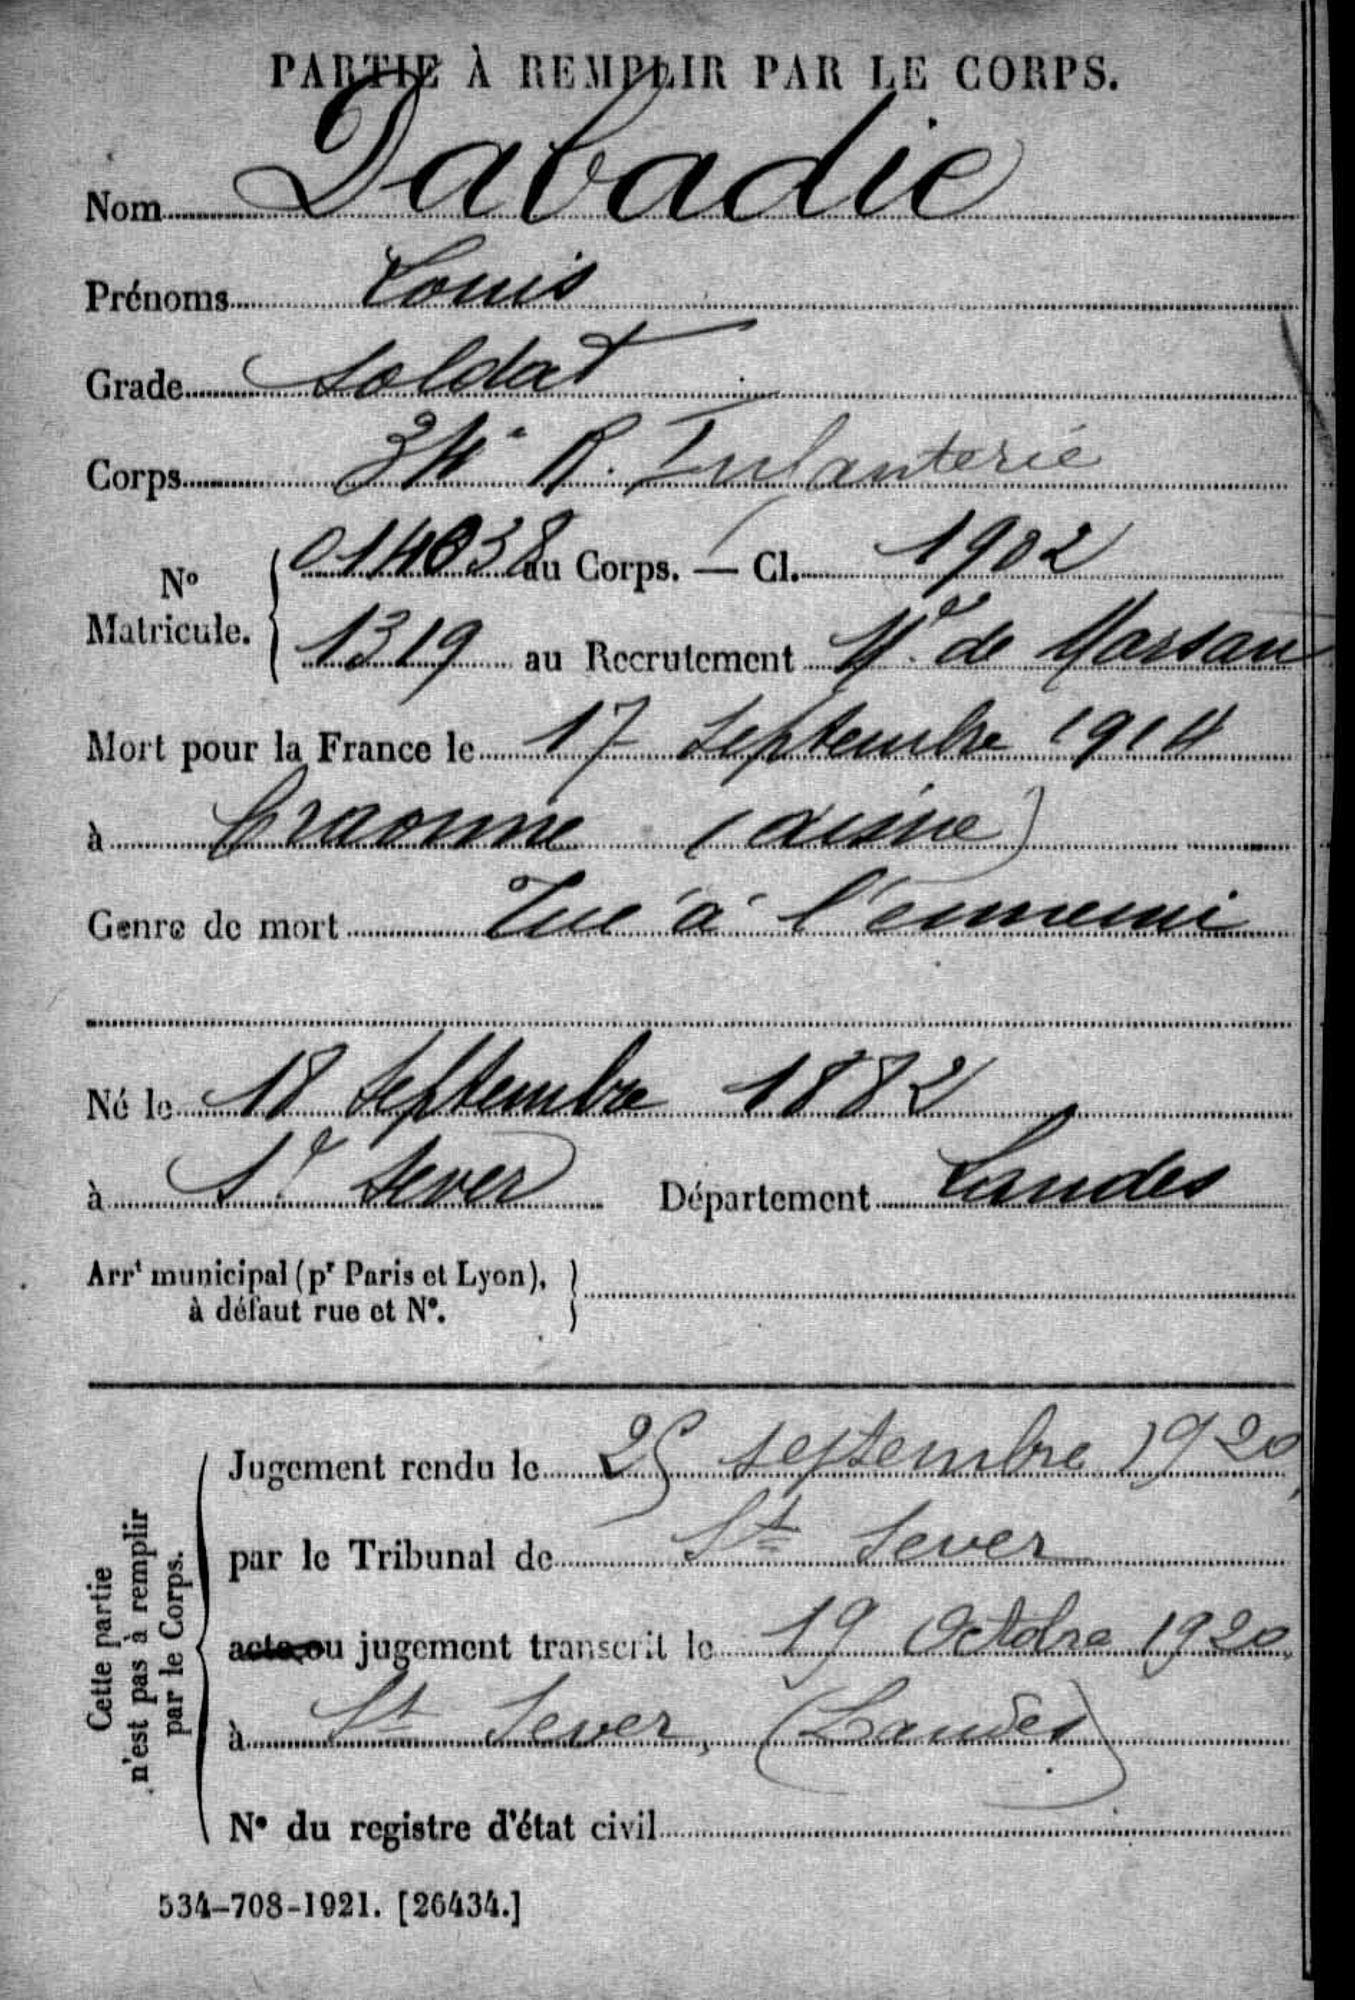 PARTIE À REMPLIR PAR LE CORPS.
Nom Dabadie
Prénoms Louis
Grade Soldat
Corps 34e R. Infanterie
N° Matricule. 014038 au Corps. — Cl. 1902
1319 au Recrutement Mt de Marsan
Mort pour la France le 17 Septembre 1914
à Craonne (Aisne)
Genre de mort Tué à l'ennemi
Né le 18 Septembre 1882
à St Sever Département Landes
Arrt municipal (pr Paris et Lyon),
à défaut rue et N°.
Cette partie
n'est pas à remplir
par le Corps.
Jugement rendu le 25 septembre 1920
par le Tribunal de St Sever
acte ou jugement transcrit le 19 Octobre 1920
à St Sever, (Landes)
N° du registre d'état civil
534-708-1921. [26434.]